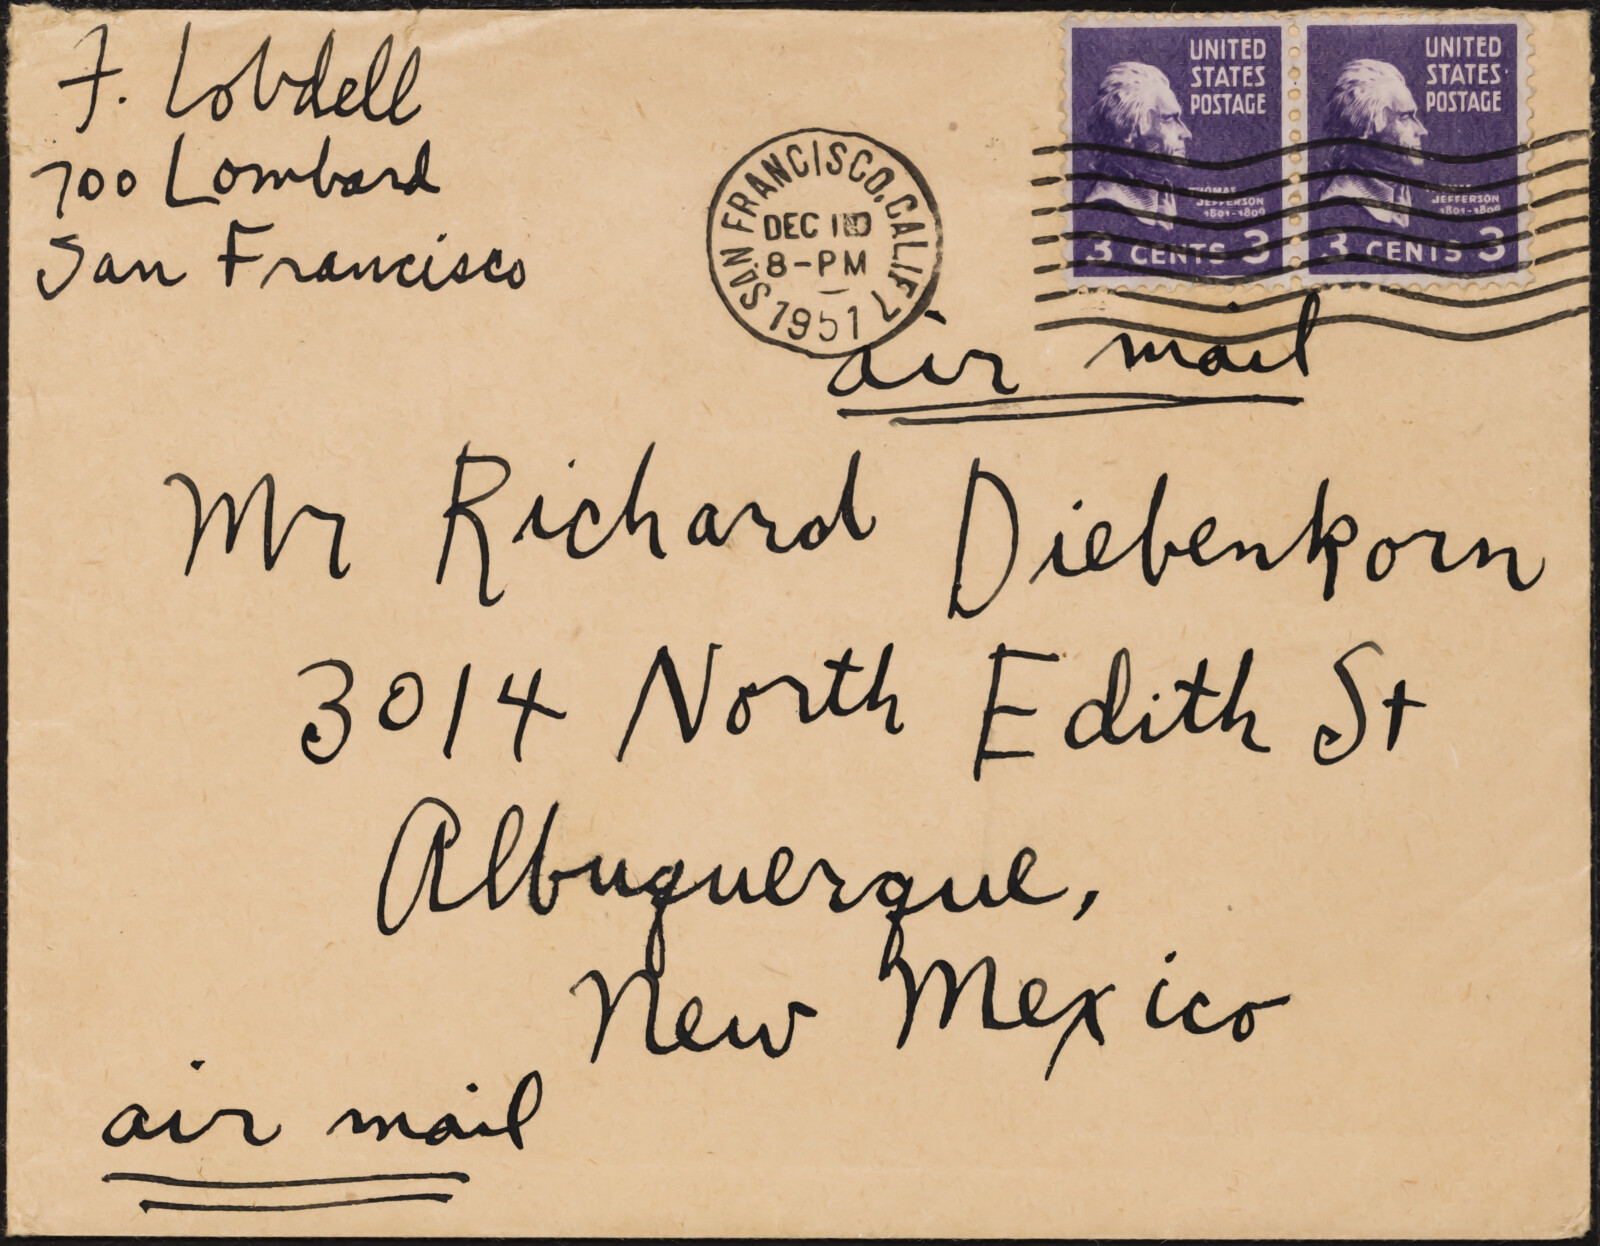 F. Lobdell
700 Lombard
San Francisco
SAN FRANCISCO, CALIF. 7
DEC
8-PM
1951
UNITED
STATES
POSTAGE
THOMAS
JEFFERSON
1801-1809
3 CENTS 3
UNITED
STATES
POSTAGE
THOMAS
JEFFERSON
1801-1809
3 CENTS 3
air mail
Mr Richard Diebenkorn
3014 North Edith St
Albuquerque,
New Mexico
air mail